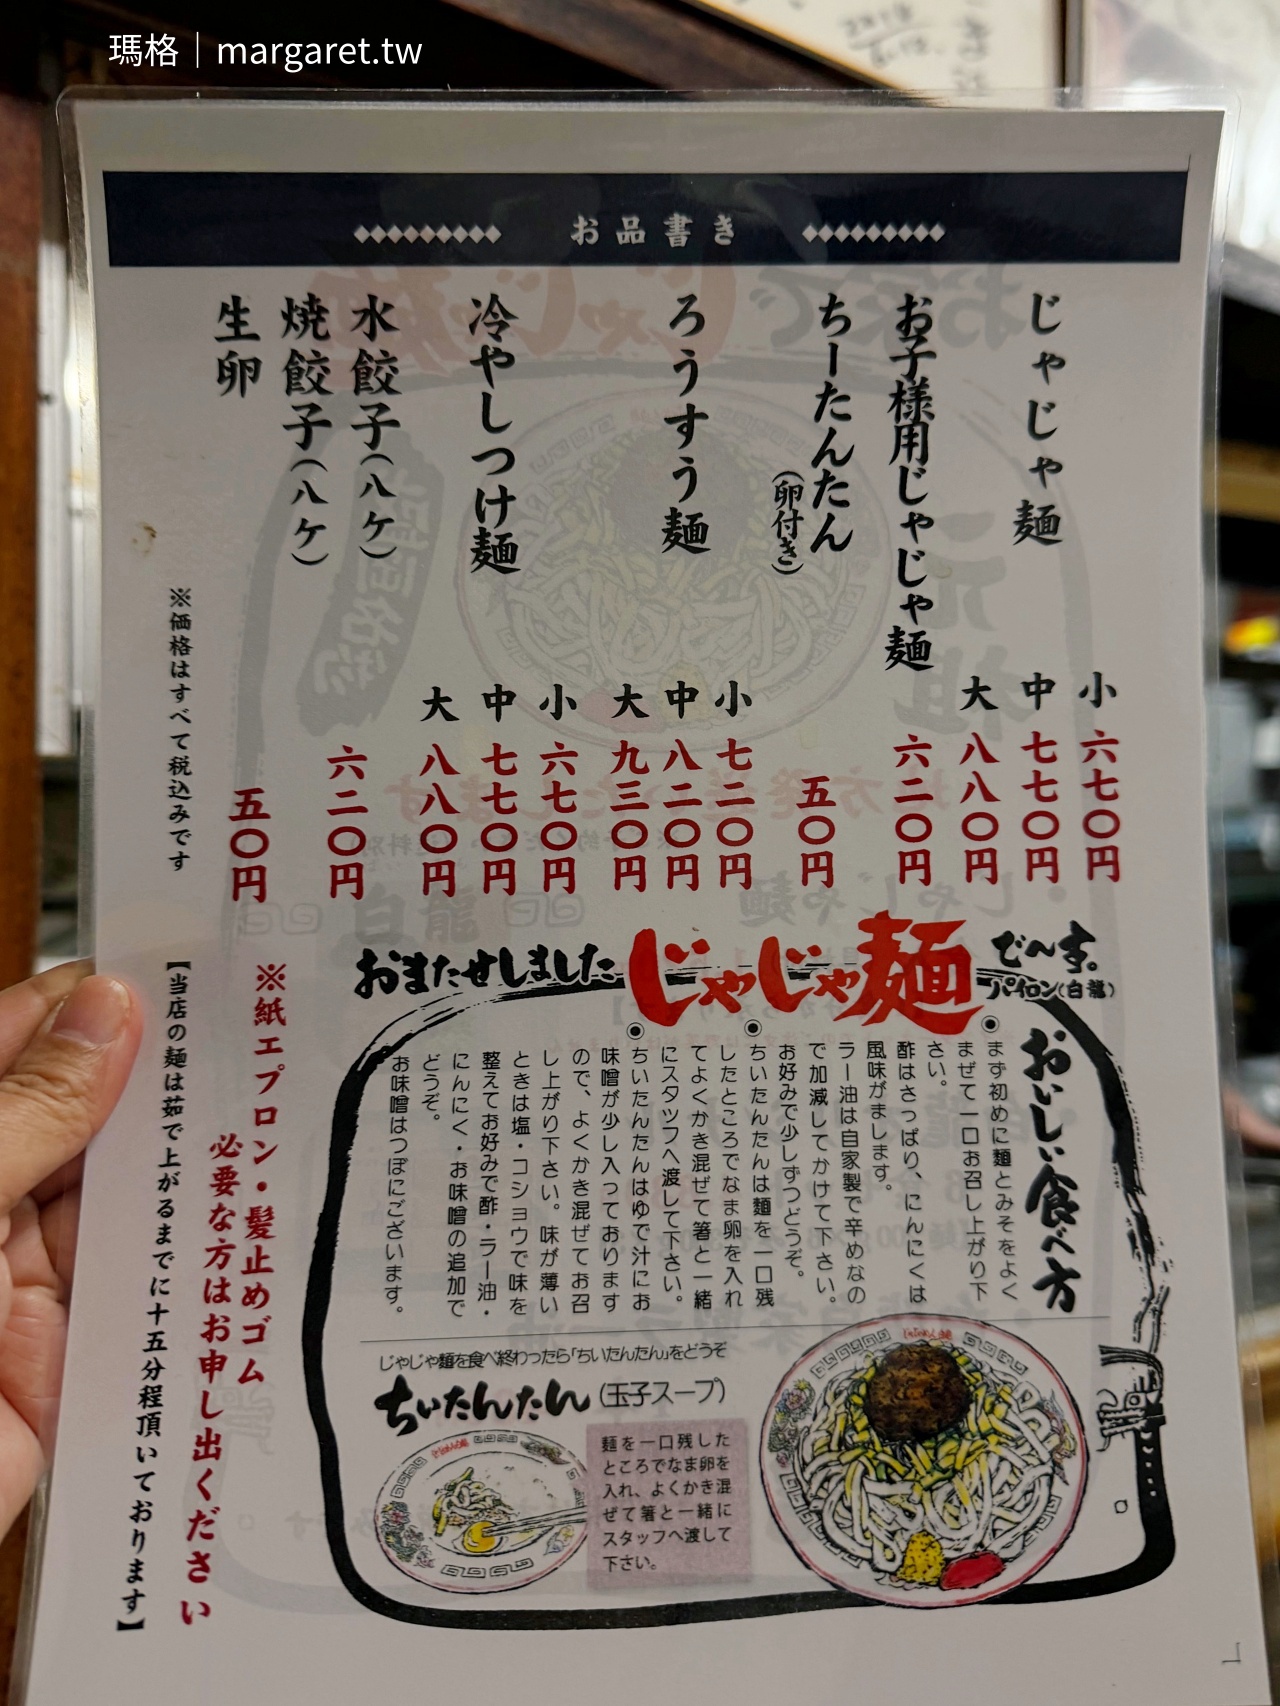 瑪格｜margaret.tw
お品書き
じゃじゃ麺
小 六七〇円
中 七七〇円
大 八八〇円
お子様用じゃじゃ麺
六二〇円
ちーたんたん
（卵付き）
五〇円
ろうすう麺
小 七二〇円
中 八二〇円
大 九三〇円
冷やしつけ麺
小 六七〇円
中 七七〇円
大 八八〇円
水餃子（八ケ）
焼餃子（八ケ）
六二〇円
生卵
五〇円
※価格はすべて税込みです
おまたせしました じゃじゃ麺 でんす。
パイロン（白龍）
おいしい食べ方
まず初めに麺とみそをよく
まぜて一口お召し上がり下
さい。
酢はさっぱり、にんにくは
風味がまします。
ラー油は自家製で辛めなの
で加減してかけて下さい。
お好みで少しずつどうぞ。
ちいたんたんは麺を一口残
したところでなま卵を入れ
てよくかき混ぜて箸と一緒
にスタッフへ渡して下さい。
ちいたんたんはゆで汁にお
味噌が少し入っております
ので、よくかき混ぜてお召
し上がり下さい。味が薄い
ときは塩・コショウで味を
整えてお好みで酢・ラー油・
にんにく・お味噌の追加で
どうぞ。
お味噌はつぼにございます。
じゃじゃ麺を食べ終わったら「ちいたんたん」をどうぞ
ちいたんたん（玉子スープ）
麺を一口残した
ところでなま卵を
入れ、よくかき混
ぜて箸と一緒に
スタッフへ渡して
下さい。
※紙エプロン・髪止めゴム
必要な方はお申し出ください
【当店の麺は茹で上がるまでに十五分程頂いております】